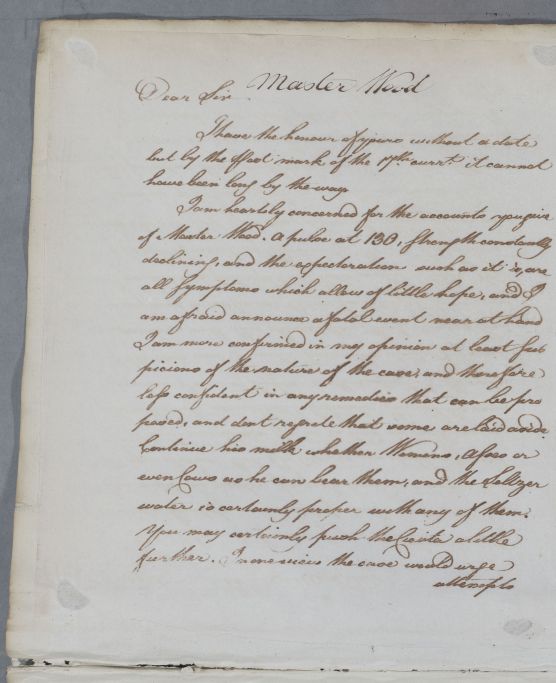 Master Wood
Dear Sir
I have the honour of yours without a date
but by the Post mark of the 17th. currt. it cannot
have been long by the way
I am heartily concerned for the accounts you give
of Master Wood. A pulse at 130, strength constantly
declining, and the expectoration such as it is, are
all symptoms which allow of little hope, and I
am afraid announce a fatal event near at hand
I am more confirmed in my opinion at least sus
picions of the nature of the case, and therefore
less confident in any remedies that can be pro
posed, and dont regrete that some are laid aside
Continue his milk whether Womens, Asses or
even Cows as he can bear them, and the Seltzer
water is certainly proper with any of them.
You may certainly push the Cicuta a little
further. In one view the case would urge
attempts